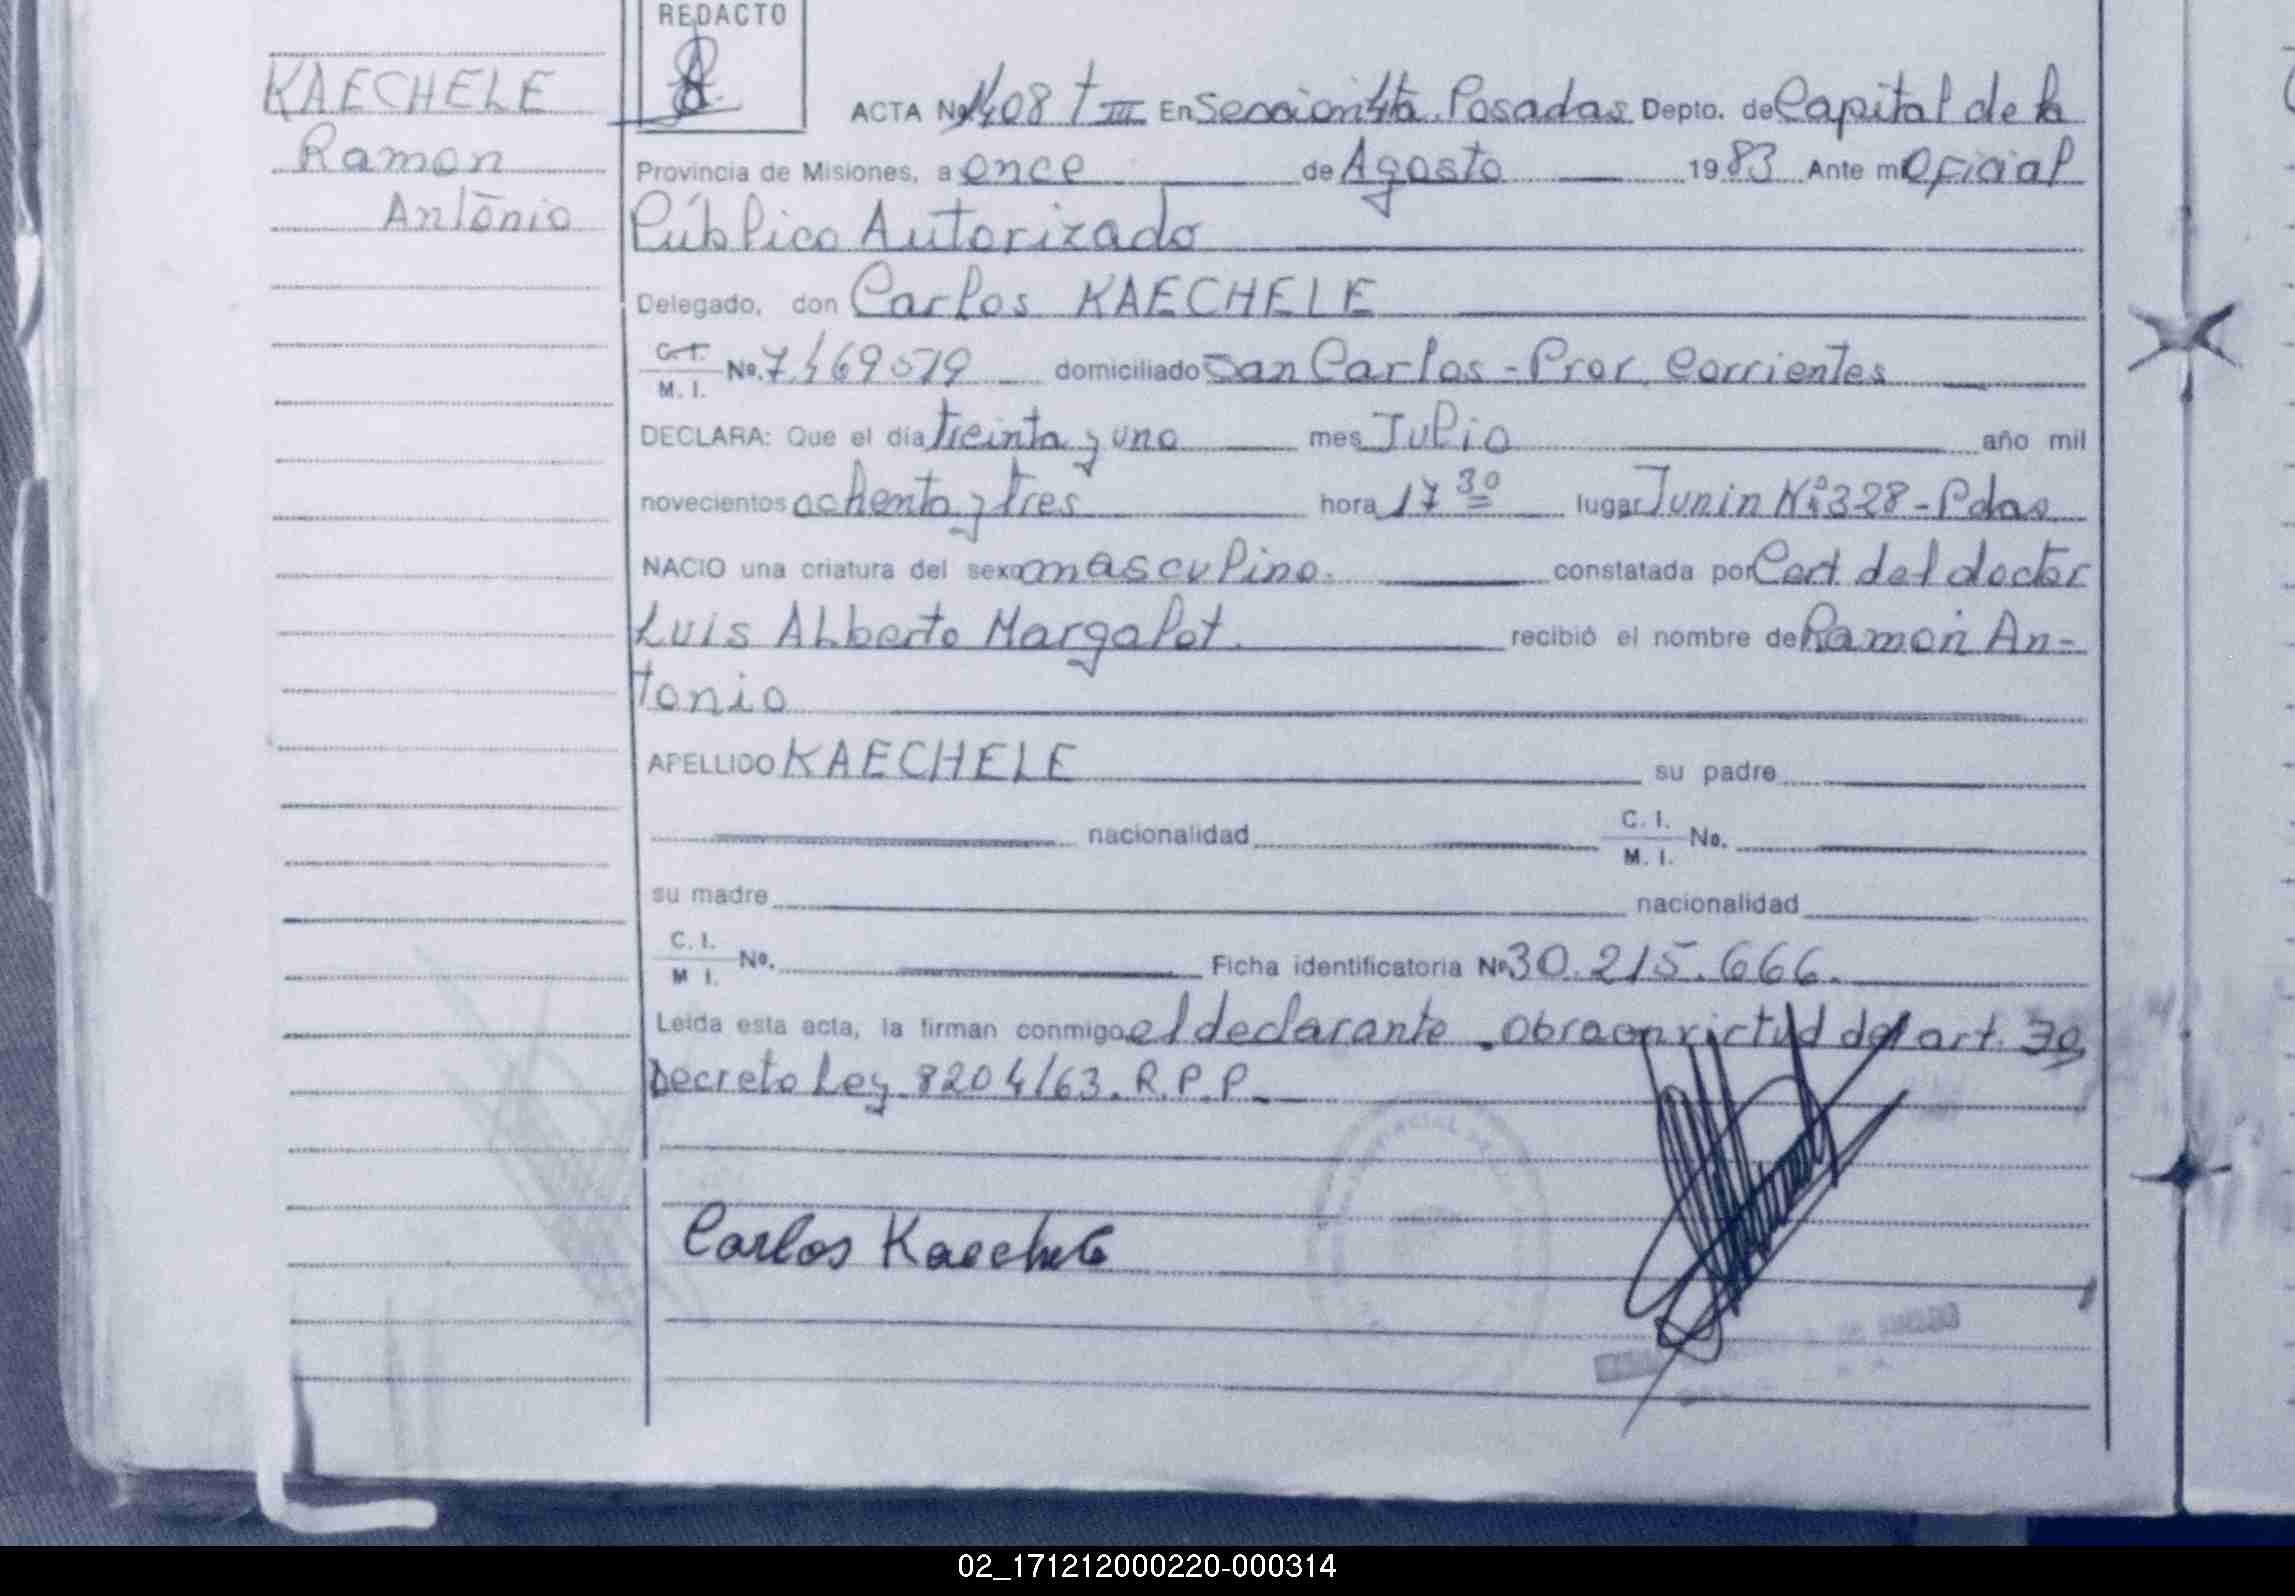 REDACTO
KAECHELE
Ramon
Antonio
ACTA No 1408 t III En Seccion 4ta. Posadas Depto. de Capital de la
Provincia de Misiones, a once de Agosto 1983 Ante mi Oficial
Público Autorizado
Delegado, don Carlos KAECHELE
C. I. M. I. No. 7.469579 domiciliado San Carlos - Prov. Corrientes
DECLARA: Que el día treinta y uno mes Julio año mil
novecientos ochenta y tres hora 17 30 lugar Junin Nº 328 - Pdas
NACIO una criatura del sexo masculino. constatada por Cert. del doctor
Luis Alberto Margalot. recibió el nombre de Ramón An-
tonio
APELLIDO KAECHELE su padre
nacionalidad C. I. M. I. No.
su madre nacionalidad
C. I. M I. No. Ficha identificatoria No 30.215.666.
Leída esta acta, la firman conmigo el declarante. Obra en virtud del art. 30
Decreto Ley 8204/63. R.P.P.
Carlos Kaechele
02_171212000220-000314